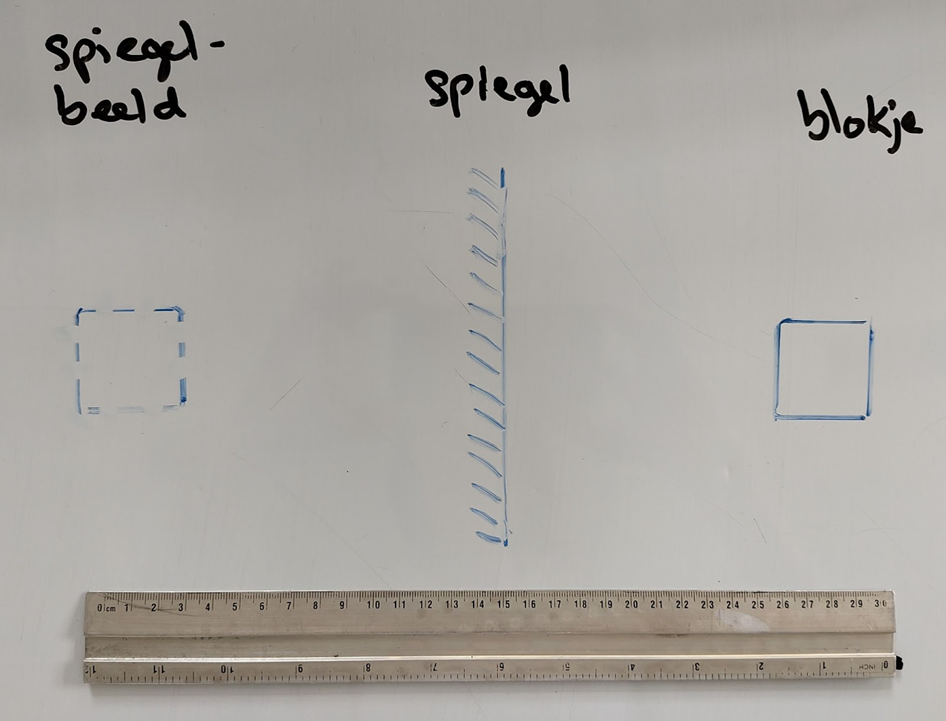 spiegel-
beeld
spiegel
blokje
0 cm 1 2 3 4 5 6 7 8 9 10 11 12 13 14 15 16 17 18 19 20 21 22 23 24 25 26 27 28 29 30
11 11 10 9 8 7 6 5 4 3 2 1 INCH 0